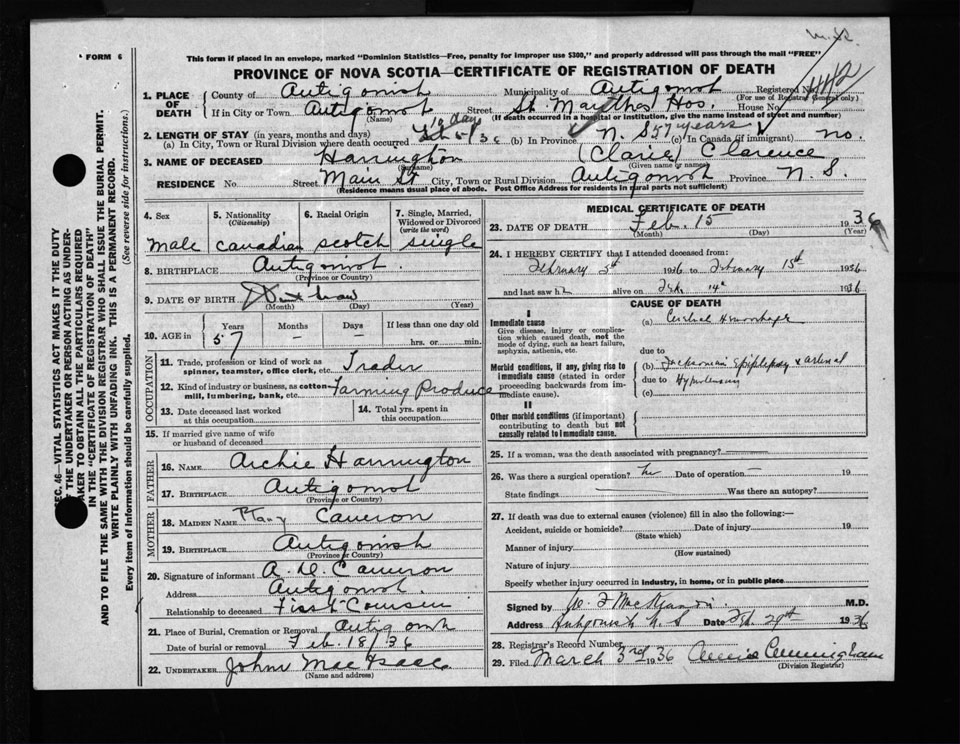 FORM 6
This form if placed in an envelope, marked "Dominion Statistics—Free, penalty for improper use $300," and properly addressed will pass through the mail "FREE"
PROVINCE OF NOVA SCOTIA—CERTIFICATE OF REGISTRATION OF DEATH
1. PLACE OF DEATH
County of Antigonish Municipality of Antigonish Registered No.
(For use of Registrar General only)
If in City or Town Antigonish Street St. Marthas Hos. House No.
(Name) (If death occurred in a hospital or institution, give the name instead of street and number)
2. LENGTH OF STAY (in years, months and days) 10 days
(a) In City, Town or Rural Division where death occurred (b) In Province N. S 57 years (c) In Canada (if immigrant) no.
3. NAME OF DECEASED Harrington (Clarie) Clarence
(Surname) (Given name or names)
RESIDENCE No. Street Main St City, Town or Rural Division Antigonish Province N. S.
(Residence means usual place of abode. Post Office Address for residents in rural parts not sufficient)
4. Sex 5. Nationality (Citizenship) 6. Racial Origin 7. Single, Married, Widowed or Divorced (write the word)
male canadian scotch single
8. BIRTHPLACE Antigonish.
(Province or Country)
9. DATE OF BIRTH
(Month) (Day) (Year)
10. AGE in Years Months Days If less than one day old
57 — — hrs. or min.
OCCUPATION
11. Trade, profession or kind of work as spinner, teamster, office clerk, etc. Trader
12. Kind of industry or business, as cotton mill, lumbering, bank, etc. Farming Produce
13. Date deceased last worked at this occupation 14. Total yrs. spent in this occupation
15. If married give name of wife or husband of deceased
FATHER
16. NAME Archie Harrington
17. BIRTHPLACE Antigonish
(Province or Country)
MOTHER
18. MAIDEN NAME Mary Cameron
19. BIRTHPLACE Antigonish
(Province or Country)
20. Signature of informant A. D. Cameron
Address Antigonish.
Relationship to deceased First Cousin
21. Place of Burial, Cremation or Removal Antigonish
Date of burial or removal Feb. 18/36
22. UNDERTAKER John MacIsaac
(Name and address)
MEDICAL CERTIFICATE OF DEATH
23. DATE OF DEATH Feb. 15 1936
(Month) (Day) (Year)
24. I HEREBY CERTIFY that I attended deceased from:
February 5th 1936 to February 15th 1936
and last saw h alive on Feb. 14th 1936
CAUSE OF DEATH
I
Immediate cause
Give disease, injury or complication which caused death, not the mode of dying, such as heart failure, asphyxia, asthenia, etc.
(a) Cerebral Hemorrhage
due to
Morbid conditions, if any, giving rise to immediate cause (stated in order proceeding backwards from immediate cause).
(b) Jacksonian Epilepsy & arterial
due to Hypertension
(c)
II
Other morbid conditions (if important) contributing to death but not causally related to immediate cause.
25. If a woman, was the death associated with pregnancy?
26. Was there a surgical operation? no Date of operation — 19
State findings Was there an autopsy?
27. If death was due to external causes (violence) fill in also the following:—
Accident, suicide or homicide? Date of injury 19
(State which)
Manner of injury
(How sustained)
Nature of injury
Specify whether injury occurred in industry, in home, or in public place
Signed by M.D.
Address Antigonish N. S Date Feb. 29th 1936
28. Registrar's Record Number
29. Filed March 3rd 1936 Cunningham
(Division Registrar)
SEC. 46—VITAL STATISTICS ACT MAKES IT THE DUTY
OF THE UNDERTAKER OR PERSON ACTING AS UNDER-
TAKER TO OBTAIN ALL THE PARTICULARS REQUIRED
IN THE "CERTIFICATE OF REGISTRATION OF DEATH"
AND TO FILE THE SAME WITH THE DIVISION REGISTRAR WHO SHALL ISSUE THE BURIAL PERMIT.
WRITE PLAINLY WITH UNFADING INK. THIS IS A PERMANENT RECORD.
Every item of information should be carefully supplied. (See reverse side for instructions.)